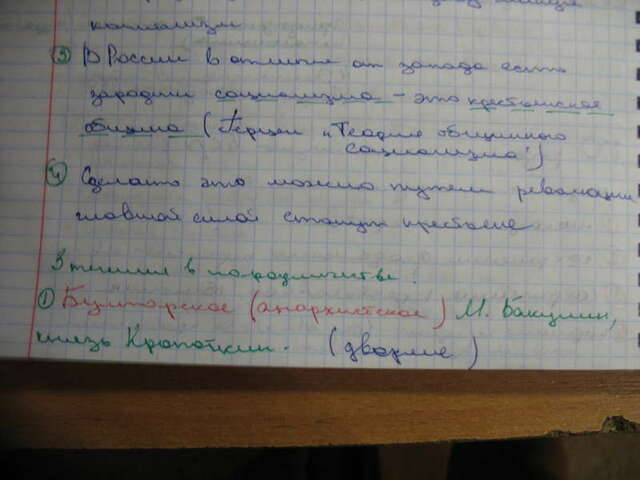 капитализм
③ В России в отличие от запада есть
зародыш социализма – это крестьянская
община (Герцен и "Теория общинного
социализма")
④ Сделать это можно путем революции
главной силой станут крестьяне
3 течения в народничестве:
① Бунтарское (анархистское) М. Бакунин,
князь Кропоткин. (дворяне)